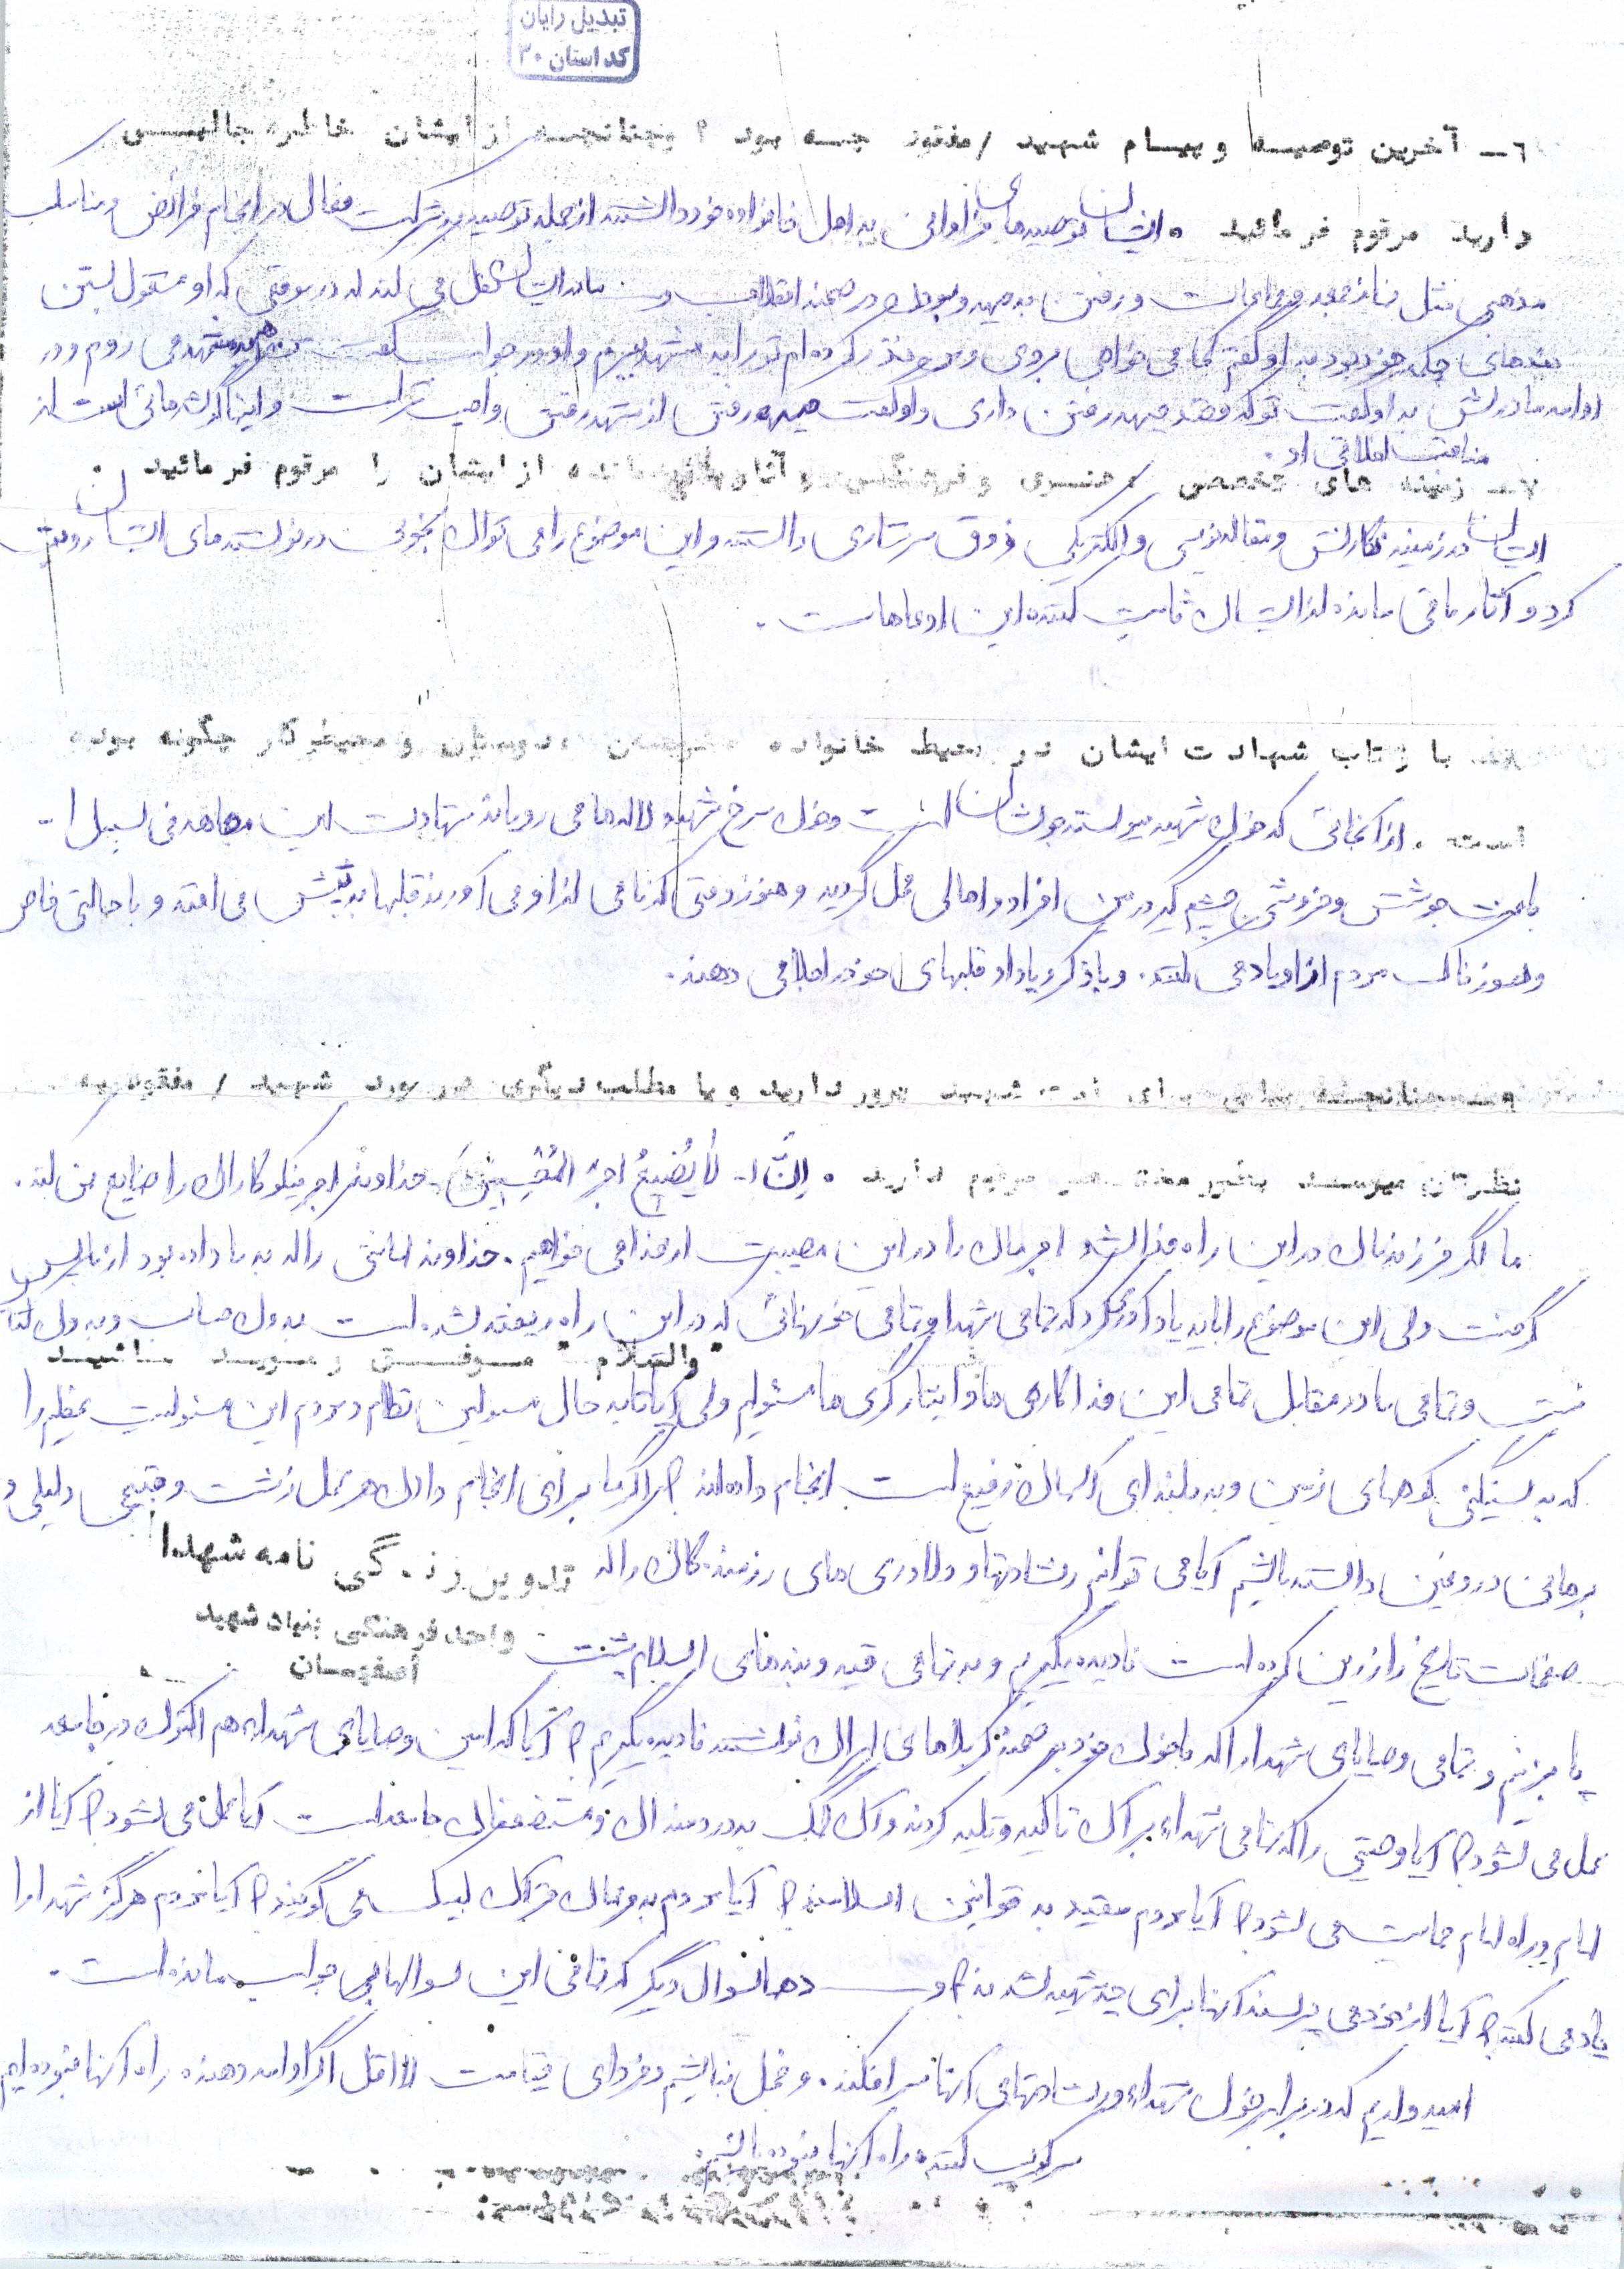 تبدیل رایان
کد استان ۲۰
٦ــ آخرین توصیه و پیام شهید /مفقود چه بود ؟ و چنانچه از ایشان خاطره جالبی
دارید مرقوم فرمائید . ایشان توصیه‌های فراوانی به اهل خانواده خود داشتند از جمله توصیه به شرکت فعال در انجام فرائض و مناسک
مذهبی مثل نماز جمعه و جماعات و رفتن به جبهه و بودن در صحنه انقلاب و ... مادر ایشان نقل می کند که در موقعی که او مشغول بستن
بندهای چکمه خود بود به او گفتم کجا می خواهی بروی من نذر کرده ام تو را به مشهد ببرم و او در جواب گفت من مشهد می روم و در
ادامه مادرش به او گفت تو که قصد جبهه رفتن داری و او گفت جبهه رفتن از مشهد رفتن واجب تر است و این گوشه‌هائی است از
مناقب اخلاقی او.
۷ــ زمینه های تخصصی ، هنری و فرهنگی و آثار باقی مانده از ایشان را مرقوم فرمائید .
ایشان در زمینه نگارش و مقاله نویسی و الکتریکی ذوق سرشاری داشتند و این موضوع را می توان بخوبی در نوشته های ایشان رویت
کرد و آثار باقی مانده از ایشان ثابت کننده این ادعاهاست .
۸ــ بازتاب شهادت ایشان در محیط خانواده ، دوستان و محیط کار چگونه بوده
است . از آنجائی که خون شهید پیوسته جوشان است و خون سرخ شهید لاله ها می رویاند شهادت این مجاهد فی سبیل ا..
باعث جوشش و خروشی چشم گیر در بین افراد و اهالی محل گردید و هنوز وقتی که نامی از او می آورند قلبها به تپش می افتد و با حالتی خاص
و سوزناک مردم از او یاد می کنند . و با ذکر و یاد او قلبهای خود را جلا می دهند .
۹ــ چنانچه پیامی برای امت شهید پرور دارید و یا مطلب دیگری در مورد شهید / مفقود به
نظرتان میرسد بطور مختصر مرقوم دارید . اِنَّ ا.. لا یُضیعُ اجرَ المُحسِنینَ . خداوند اجر نیکوکاران را ضایع نمی کند .
ما اگر فرزندمان در این راه فدا شد اجرمان را در این مصیبت از خدا می خواهیم . خداوند امانتی را که به ما داده بود از ما پس
گرفت ولی این موضوع را باید یادآوری کرد که تمامی شهدا و تمامی خونهائی که در این راه ریخته شده است بدون حساب و بدون کتاب
" والسلام " موفق و موید باشید
نیست و تمامی ما در مقابل تمامی این فداکاری ها و ایثارگری ها مسئولیم ولی آیا تا به حال مسولین نظام و مردم این مسئولیت عظیم را
که به سنگینی کوههای زمین و به بلندای آسمان رفیع است انجام داده اند ؟ اگر ما برای انجام دادن هر عمل زشت و قبیحی دلیلی و
برهانی دروغین داشته باشیم آیا می توانیم رشادتها و دلاوری های رزمندگان را که
تدوین زندگی نامه شهدا
واحد فرهنگی بنیاد شهید
اصفهان
صفحات تاریخ را زرین کرده است نادیده بگیریم و به تمامی قید و بندهای اسلام پشت
پا بزنیم و تمامی وصایای شهدا را که با خون خود بر صحنه کربلاهای ایران نوشتند نادیده بگیریم ؟ آیا کدامین وصایای شهداء هم اکنون در جامعه
عمل می شود ؟ آیا وصیتی را که تمامی شهداء بر آن تاکید و تکیه کردند و آن کمک به دردمندان و مستضعفان جامعه است آیا عمل می شود ؟ آیا از
امام و راه امام حمایت می شود ؟ آیا مردم مقید به قوانین اسلامند ؟ آیا مردم به فرمان قرآن لبیک می گویند ؟ آیا مردم هرگز شهدا را
یاد می کنند ؟ آیا از خود می پرسند آنها برای چه شهید شدند ؟ و ... دهها سوال دیگر که تمامی این سوالها بی جواب مانده است .
امیدواریم که در برابر خون شهداء و رشادتهای آنها سرافکنده و خجل نباشیم و فردای قیامت لااقل اگر ادامه دهنده راه آنها نبوده ایم
سرکوب کننده راه آنها نبوده باشیم